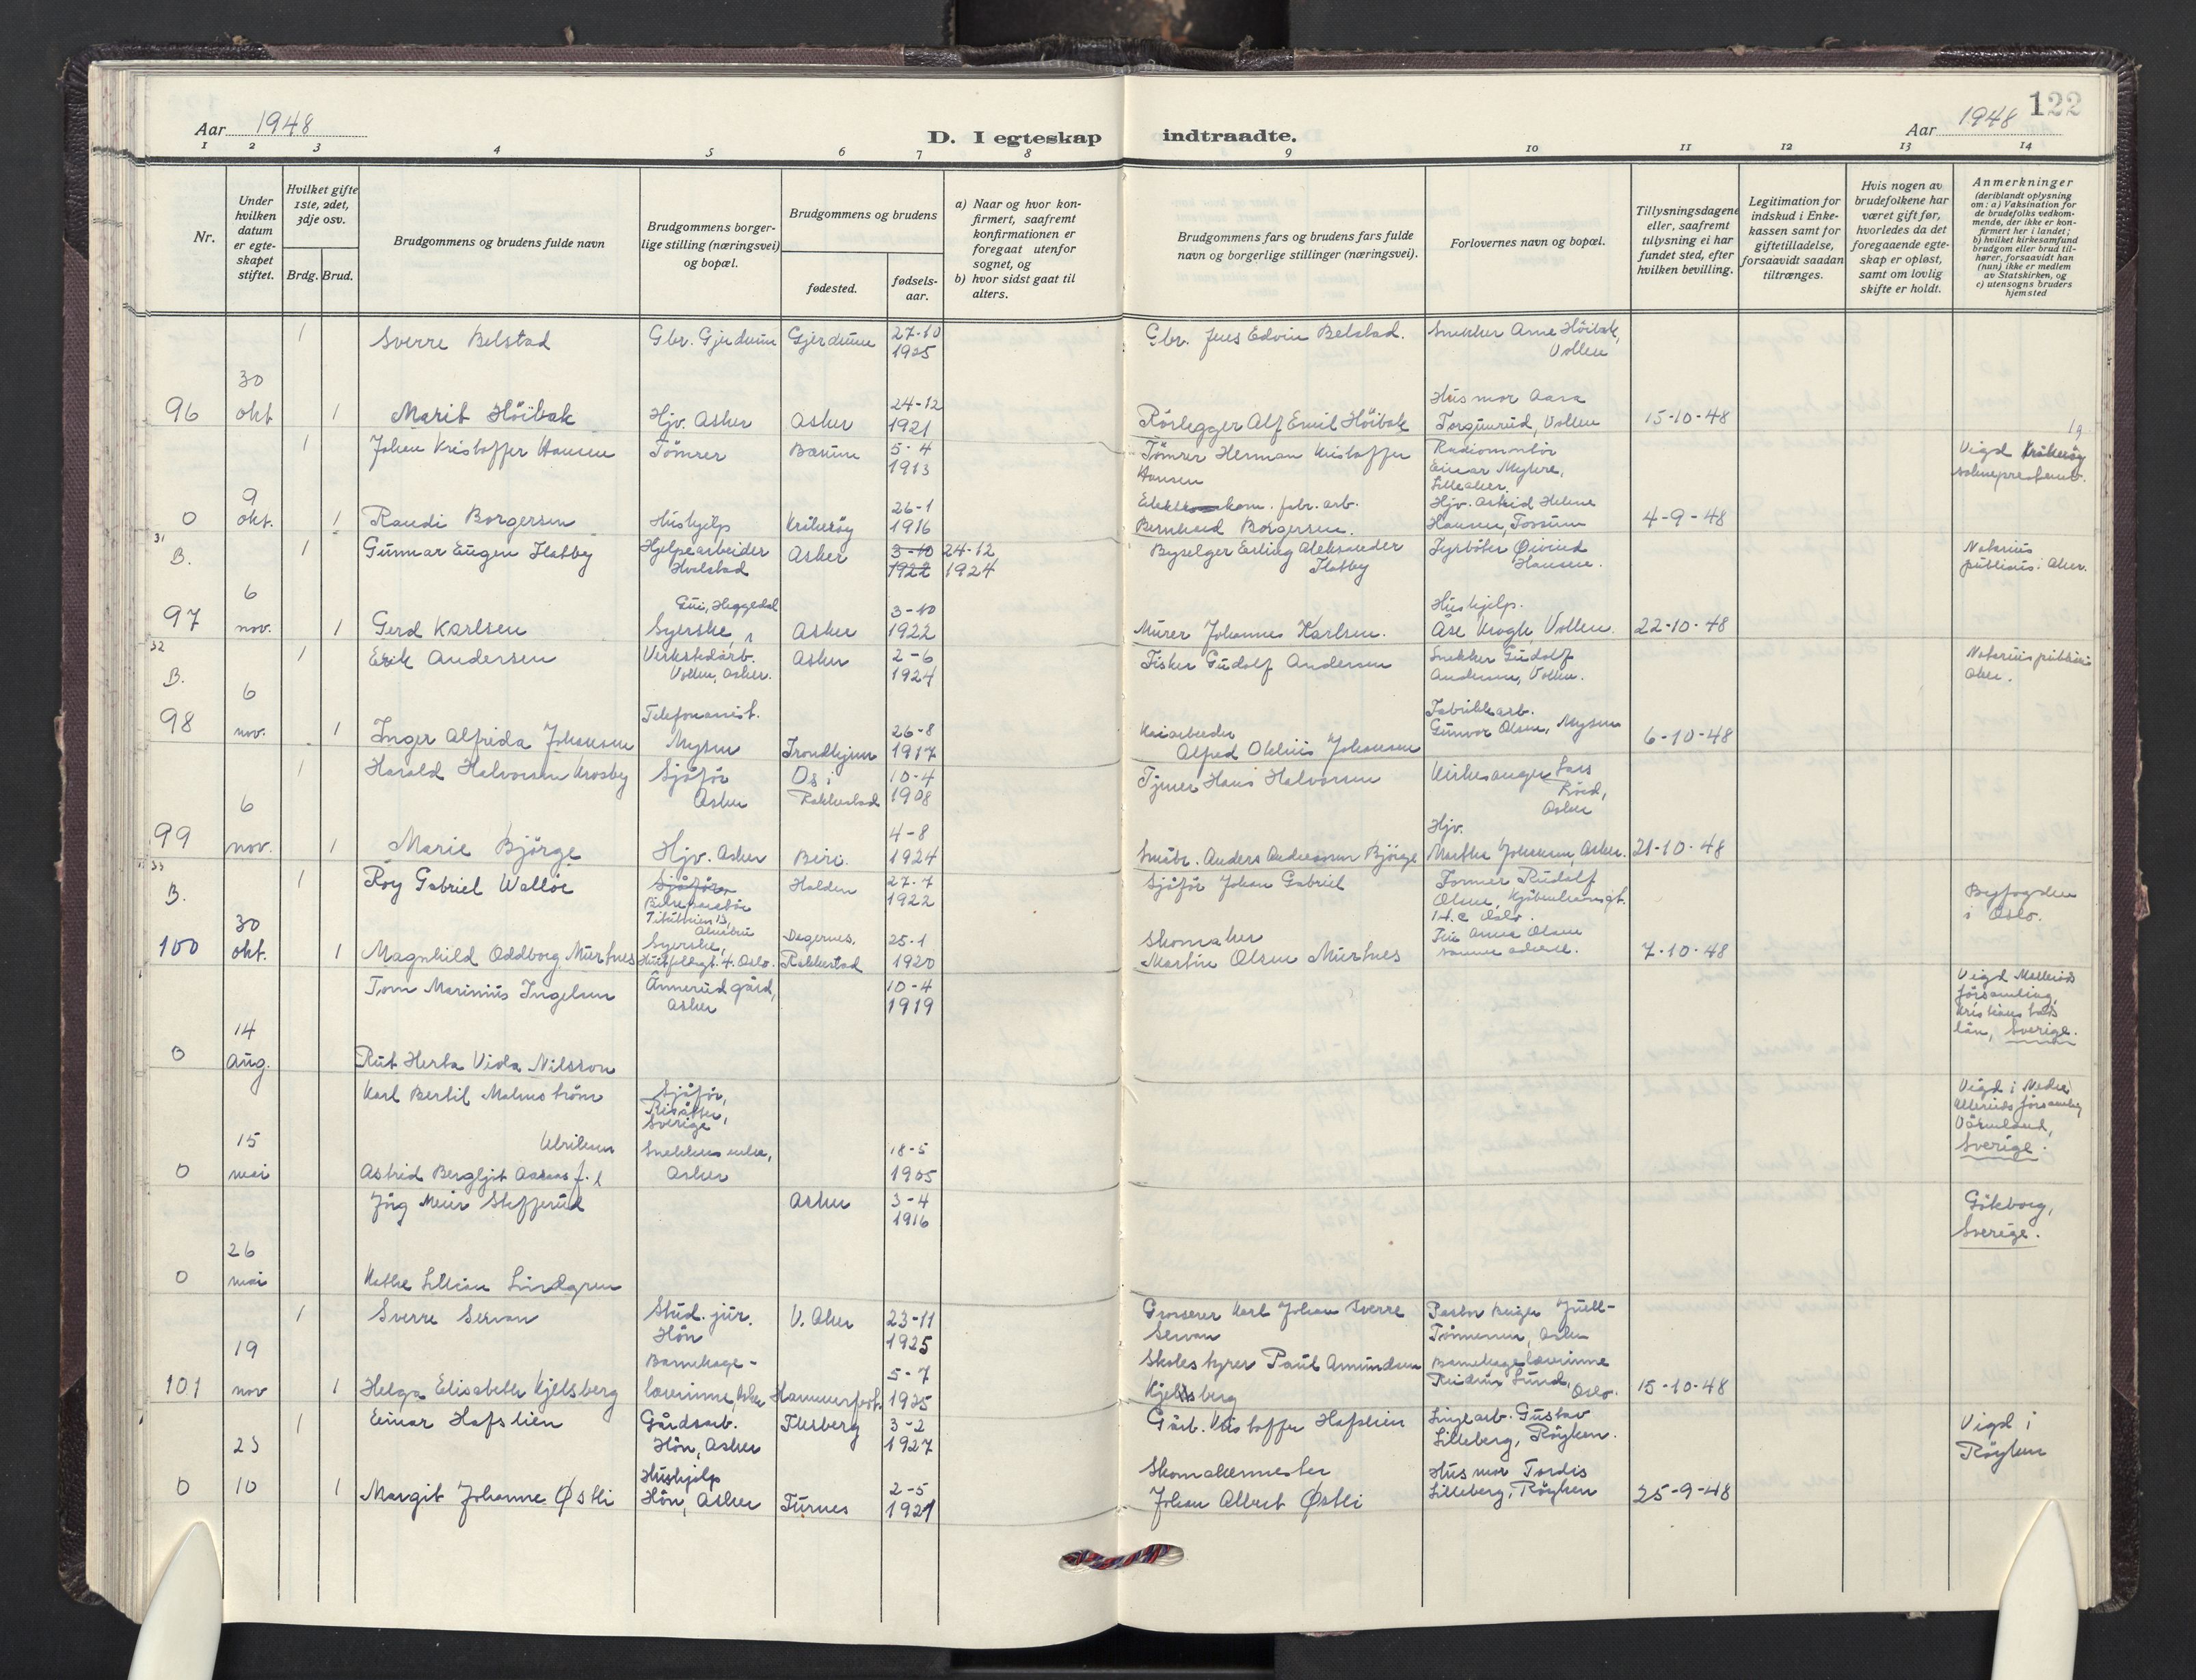 122
Aar 1948
D. I egteskap indtraadte.
Aar 1948
1 2 3 4 5 6 7 8 9 10 11 12 13 14
Nr.
Under
hvilken
datum
er egte-
skapet
stiftet.
Hvilket gifte
1ste, 2det,
3dje osv.
Brdg. Brud.
Brudgommens og brudens fulde navn
Brudgommens borger-
lige stilling (næringsvei)
og bopæl.
Brudgommens og brudens
fødested.
fødsels-
aar.
a) Naar og hvor kon-
firmert, saafremt
konfirmationen er
foregaat utenfor
sognet, og
b) hvor sidst gaat til
alters.
Brudgommens fars og brudens fars fulde
navn og borgerlige stillinger (næringsvei).
Forlovernes navn og bopæl.
Tillysningsdagene
eller, saafremt
tillysning ei har
fundet sted, efter
hvilken bevilling.
Legitimation for
indskud i Enke-
kassen samt for
giftetilladelse,
forsaavidt saadan
tiltrænges.
Hvis nogen av
brudefolkene har
været gift før,
hvorledes da det
foregaaende egte-
skap er opløst,
samt om lovlig
skifte er holdt.
Anmerkninger
(deriblandt oplysning
om: a) Vaksination for
de brudefolks vedkom-
mende, der ikke er kon-
firmert her i landet;
b) hvilket kirkesamfund
brudgom eller brud til-
hører, forsaavidt han
(hun) ikke er medlem
av Statskirken, og
c) utensogns bruders
hjemsted
1 Sverre Belstad Gbr. Gjerdrum Gjerdrum 27-10
1925
Gbr. Jens Edvin Belstad. Snekker Arne Höibak,
Vollen
96 30
okt 1 Marit Höibak Hjv. Asker Asker 24-12
1921
Rörlegger Alf Emil Höibak Husmor Aasa
Torgunrud, Vollen 15-10-48
1 Johan Kristoffer Hansen Tömrer Bærum 5-4
1913
Tömrer Herman Kristoffer
Hansen Radiomontör
Einar Myhre,
Lilleaker.
Vigd Kråkeröy
sokneprestembd.
0 9
okt. 1 Randi Borgersen Hushjelp Kråkeröy 26-1
1916
fabr. arb.
Bernhard Borgersen. Hjv. Astrid Helene
Hansen, Fossum 4-9-48
31
B. 1 Gunnar Eugen Flatby Hjelpearbeider
Hvalstad Asker 3-10
1922 24-12
1924
Byselger Erling Aleksander
Flatby Fyrböter Øivind
Hansen.
Notarius
publicus i Aker.
97 6
nov. 1 Gerd Karlsen Gui, Heggedal
Syerske, Asker 3-10
1922
Murer Johannes Karlsen. Hushjelp.
Åse Krogh, Vollen. 22-10-48
32
B. 1 Erik Andersen Verkstedarb.
Vollen, Asker. Asker 2-6
1924
Fisker Gudolf Andersen Snekker Gudolf
Andersen, Vollen.
Notarius publicus
Aker.
98 6
nov. 1 Inger Alfrida Johansen Telefonanist.
Mysen Trondhjem 26-8
1917
Kaiarbeider
Alfred Johansen Fabrikkarb.
Gunvor Olsen, Mysen 6-10-48
1 Harald Halvorsen Krosby Sjåför
Asker Os i
Rakkestad 10-4
1908
Hans Halvorsen Kirkesanger Lars
Röed,
Asker
99 6
nov. 1 Marie Bjørge Hjv. Asker Biri. 4-8
1924
Småbr. Anders Andreassen Bjørge Hjv.
Marthe Johansen, Asker. 21-10-48
33
B. 1 Roy Gabriel Walloe Sjåför Halden 27-7
1922
Sjåför Johan Gabriel Former Rudolf
Olsen, Kjöbenhavngt.
14.c Oslo.
Byfogden
i Oslo.
100 30
okt. 1 Magnhild Oddborg Murtnes Syerske,
4. Oslo. Degernes,
Rakkestad 25-1
1920
Skomaker
Martin Olsen Murtnes Anna Olsen
samme adresse. 7-10-48
Tom Marinius Ingelsen Annerud gård,
Asker 10-4
1919
Vigd
församling,
Kristianstads
län, Sverige.
0 14
aug. Rut Herta Vida Nilsson
Karl Bertil Malmström Sjåför,
Risäter,
Sverige
Vigd i Nedre
Ullerüds församling
Värmland,
Sverige.
0 15
mai Ulriksen
Astrid Bergljot Aasaas f.
Asker 18-5
1905
Jörg Meier Stefferud Asker 3-4
1916
Göteborg,
Sverige.
0 26
mai Kathe Lillian Lindgren
1 Sverre Servan Stud. jur.
Hön V. Aker 23-11
1925
Grosserer Karl Johan Sverre
Servan Pastor Juell-
Tönnesen, Asker
101 19
nov 1 Helga Elisabeth Kjelsberg Barnehage-
lærerinne, Asker Hammerfest. 5-7
1925
Skolestyrer Paul Amundsen
Kjelsberg Barnehagelærerinne
Reidun Lund, Oslo. 15-10-48
1 Einar Hafslien Gårdsarb.
Hön, Asker Flesberg 3-2
1927
Gårb. Kristoffer Hafslien Linjearb. Gustav
Lilleberg, Röyken.
Vigd i
Röyken
0 23
10 1 Margit Johanne Østli Hushjelp
Hön, Asker Furnes 2-5
1921
Skomakermester
Johan Albert Østli Husmor Tordis
Lilleberg, Röyken 25-9-48